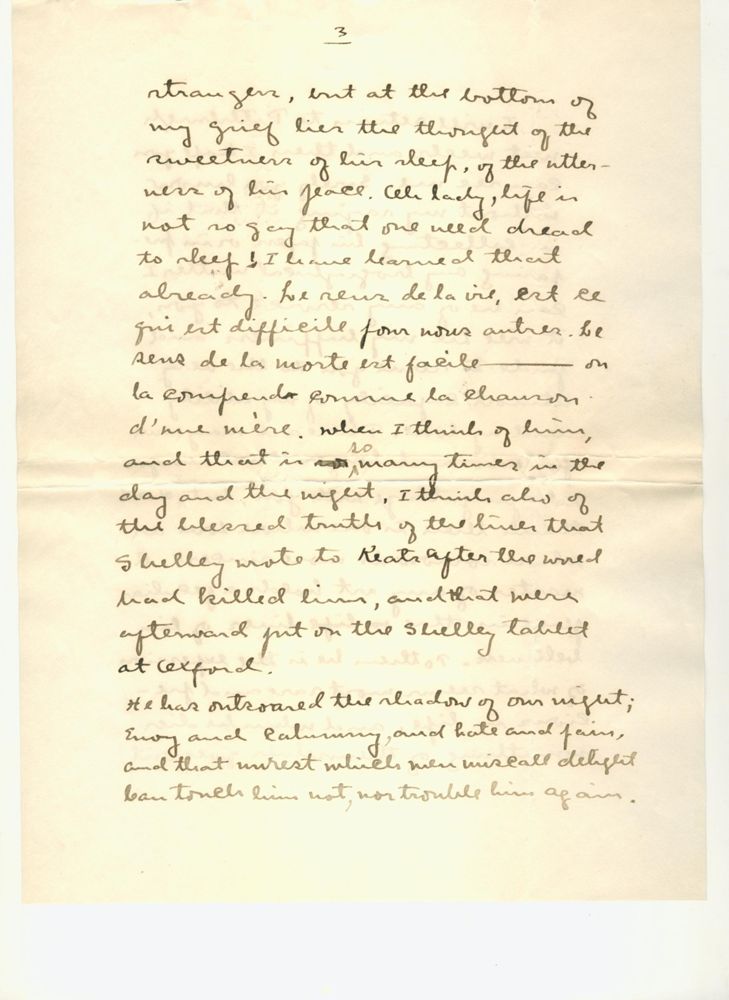 3
strangers, but at the bottom of
my grief lies the thought of the
sweetness of his sleep, of the utter-
ness of his peace. Oh lady, life is
not so gay that one need dread
to sleep! I have learned that
already. Le sens de la vie, est ce
qui est difficile pour nous autres. Le
sens de la morte est facile —— on
la comprend comme la chanson
d'une mère. When I think of him,
and that is so many times in the
day and the night, I think also of
the blessed truth of the lines that
Shelley wrote to Keats after the world
had killed him, and that were
afterward put on the Shelley tablet
at Oxford.
He has outsoared the shadow of our night;
Envy and calumny, and hate and pain,
and that unrest which men miscall delight
Can touch him not, nor trouble him again.